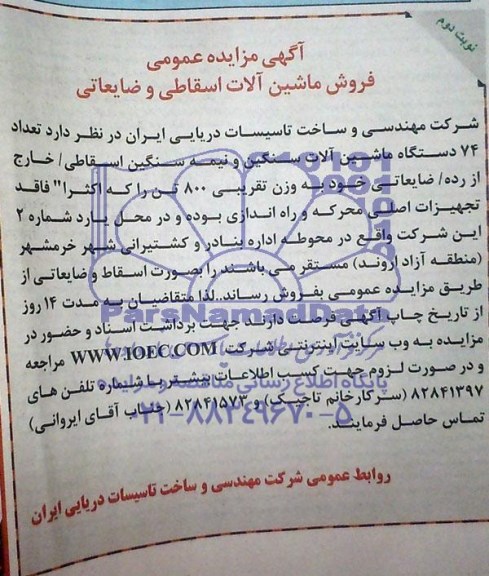 نوبت دوم
آگهی مزایده عمومی
فروش ماشین آلات اسقاطی و ضایعاتی
شرکت مهندسی و ساخت تاسیسات دریایی ایران در نظر دارد تعداد
۷۴ دستگاه ماشین آلات سنگین و نیمه سنگین اسقاطی/ خارج
از رده/ ضایعاتی خود به وزن تقریبی ۸۰۰ تن را که اکثرا" فاقد
تجهیزات اصلی محرکه و راه اندازی بوده و در محل یارد شماره ۲
این شرکت واقع در محوطه اداره بنادر و کشتیرانی شهر خرمشهر
(منطقه آزاد اروند) مستقر می باشند را بصورت اسقاط و ضایعاتی از
طریق مزایده عمومی بفروش رساند..لذا متقاضیان به مدت ۱۴ روز
از تاریخ چاپ آگهی فرصت دارند جهت برداشت اسناد و حضور در
مزایده به وب سایت اینترنتی شرکت WWW.IOEC.COM مراجعه
و در صورت لزوم جهت کسب اطلاعات بیشتر با شماره تلفن های
۸۲۸۴۱۳۹۷ (سرکارخانم تاجیک) و ۸۲۸۴۱۵۷۳ (جناب آقای ایروانی)
تماس حاصل فرمایند.
روابط عمومی شرکت مهندسی و ساخت تاسیسات دریایی ایران
ParsNamadData
پایگاه اطلاع رسانی مناقصه و مزایده
۰۲۱-۸۸۳۴۹۶۷۰-۵